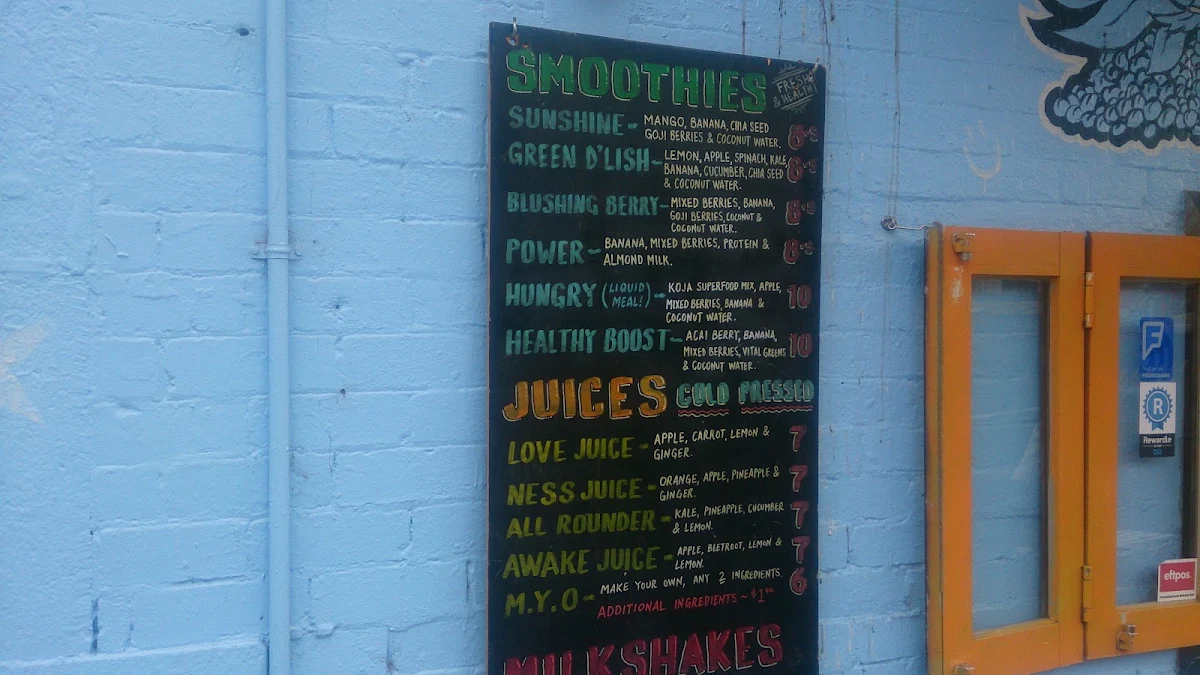 SMOOTHIES
FRESH
& HEALTHY
SUNSHINE - MANGO, BANANA, CHIA SEED
GOJI BERRIES & COCONUT WATER. 8.5
GREEN D'LISH - LEMON, APPLE, SPINACH, KALE,
BANANA, CUCUMBER, CHIA SEED 8.5
& COCONUT WATER.
BLUSHING BERRY - MIXED BERRIES, BANANA,
GOJI BERRIES, COCONUT & 8.5
COCONUT WATER.
POWER - BANANA, MIXED BERRIES, PROTEIN & 8.5
ALMOND MILK.
HUNGRY (LIQUID MEAL!) - KOJA SUPERFOOD MIX, APPLE, 10
MIXED BERRIES, BANANA &
COCONUT WATER.
HEALTHY BOOST - ACAI BERRY, BANANA,
MIXED BERRIES, VITAL GREENS 10
& COCONUT WATER.
JUICES COLD PRESSED
LOVE JUICE - APPLE, CARROT, LEMON & 7
GINGER.
NESS JUICE - ORANGE, APPLE, PINEAPPLE & 7
GINGER.
ALL ROUNDER - KALE, PINEAPPLE, CUCUMBER 7
& LEMON.
AWAKE JUICE - APPLE, BEETROOT, LEMON & 7
LEMON.
M.Y.O - MAKE YOUR OWN, ANY 2 INGREDIENTS. 6
ADDITIONAL INGREDIENTS - $1.00
MILKSHAKES
FOURSQUARE
R
Rewardle
eftpos